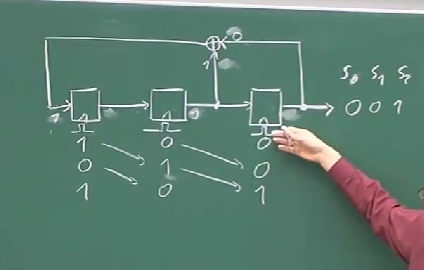 0
1
S₀ S₁ S₂
0 0 1
1 0 0
0 1 0
1 0 1